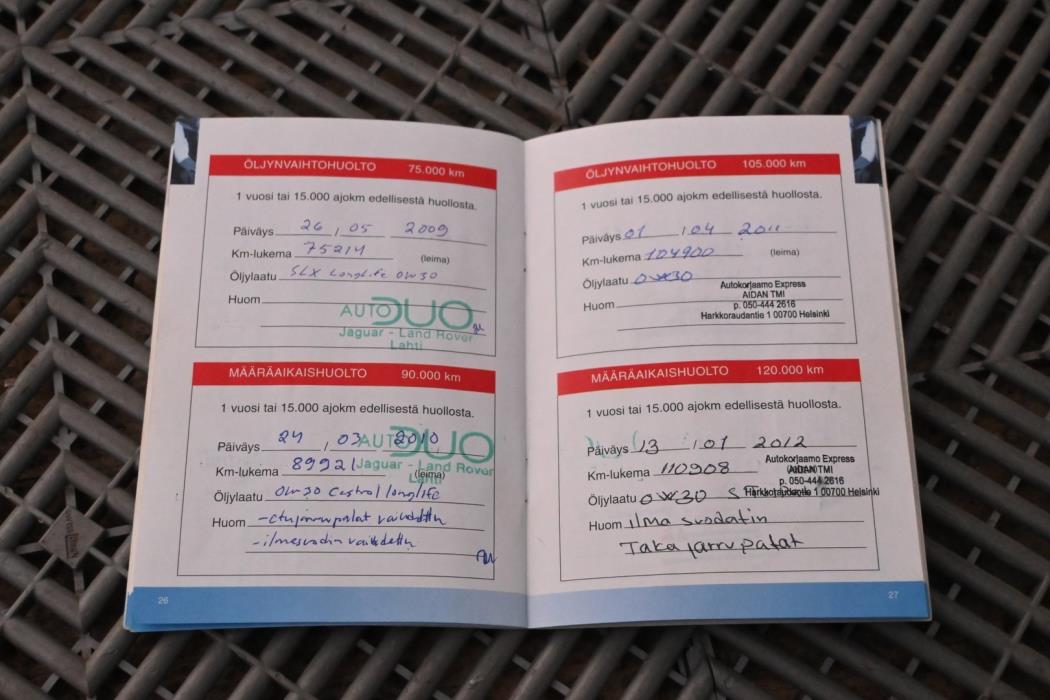 ÖLJYNVAIHTOHUOLTO 75.000 km
1 vuosi tai 15.000 ajokm edellisestä huollosta.
Päiväys 26 / 05 2009
Km-lukema 75214
(leima)
Öljylaatu SLX Longlife 0W30
Huom
AUTODUO
Jaguar - Land Rover
Lahti
MÄÄRÄAIKAISHUOLTO 90.000 km
1 vuosi tai 15.000 ajokm edellisestä huollosta.
Päiväys 24 / 03 2010
AUTODUO
Km-lukema 89921
Jaguar - Land Rover
Lahti
(leima)
Öljylaatu 0W30 Castrol longlife
Huom - etujarrupalat vaihdettu
- ilmasuodin vaihdettu
26
ÖLJYNVAIHTOHUOLTO 105.000 km
1 vuosi tai 15.000 ajokm edellisestä huollosta.
Päiväys 01 / 04 2011
Km-lukema 104900
(leima)
Öljylaatu 0W30
Huom
Autokorjaamo Express
AIDAN TMI
p. 050-444 2616
Harkkoraudantie 1 00700 Helsinki
MÄÄRÄAIKAISHUOLTO 120.000 km
1 vuosi tai 15.000 ajokm edellisestä huollosta.
Päiväys 13 / 01 2012
Km-lukema 110908
(leima)
Autokorjaamo Express
AIDAN TMI
p. 050-444 2616
Harkkoraudantie 1 00700 Helsinki
Öljylaatu 0W30
Huom ilma suodatin
Taka jarru palat
27